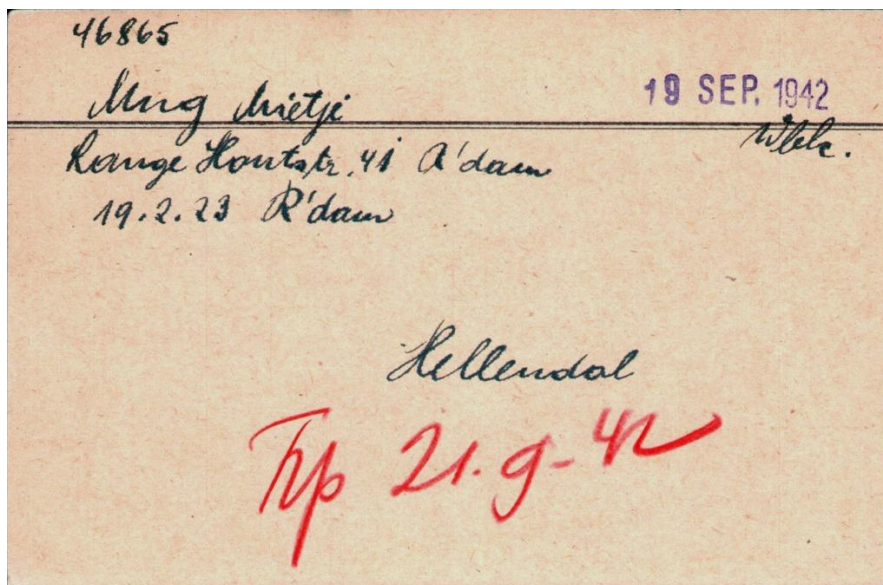 46865
Mug Mietje
19 SEP. 1942
Wbk.
Lange Houtstr. 41 A'dam
19.2.23 R'dam
Hellendal
Trp 21.9-42